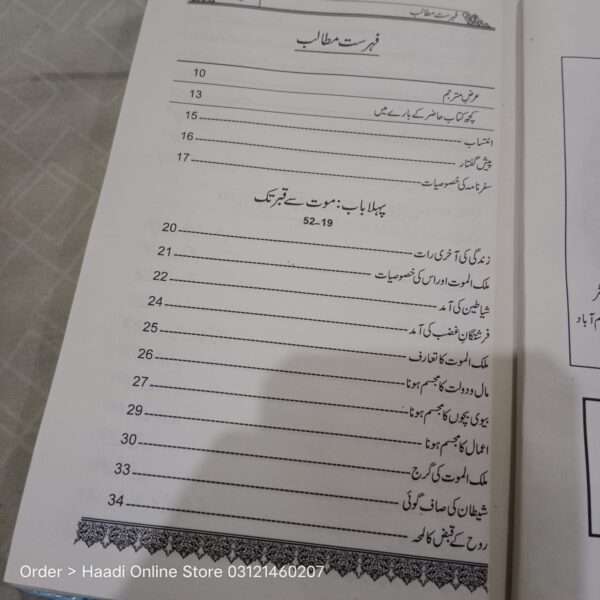 فہرست مطالب
فہرست مطالب
عرض مترجم 10
کچھ کتاب حاضر کے بارے میں 13
انتساب 15
پیش گفتار 16
سفرنامہ کی خصوصیات 17
پہلا باب: موت سے قبر تک
52-19
زندگی کی آخری رات 20
ملک الموت اور اس کی خصوصیات 21
شیاطین کی آمد 22
فرشتگانِ غضب کی آمد 24
ملک الموت کا تعارف 25
مال و دولت کا مجسم ہونا 26
بیوی بچوں کا مجسم ہونا 27
اعمال کا مجسم ہونا 29
ملک الموت کی گرج 30
شیطان کی صاف گوئی 33
روح کے قبض کا لمحہ 34
Order > Haadi Online Store 03121460207